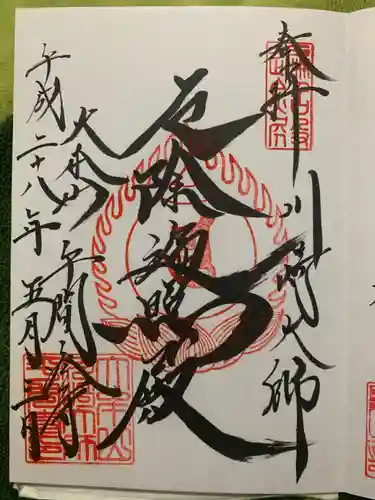 奉拝
川崎大師
厄除遍照殿
大本山
平間寺
平成二十八年五月三日